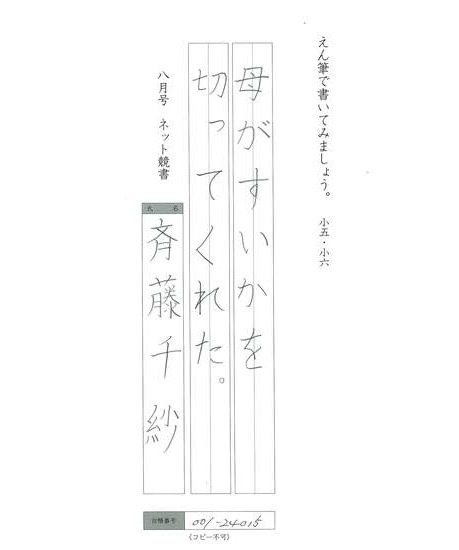 えん筆で書いてみましょう。 小五・小六
母がすいかを
切ってくれた。
八月号 ネット競書
氏名
斉藤千紗
合格番号 001-24015
(コピー不可)